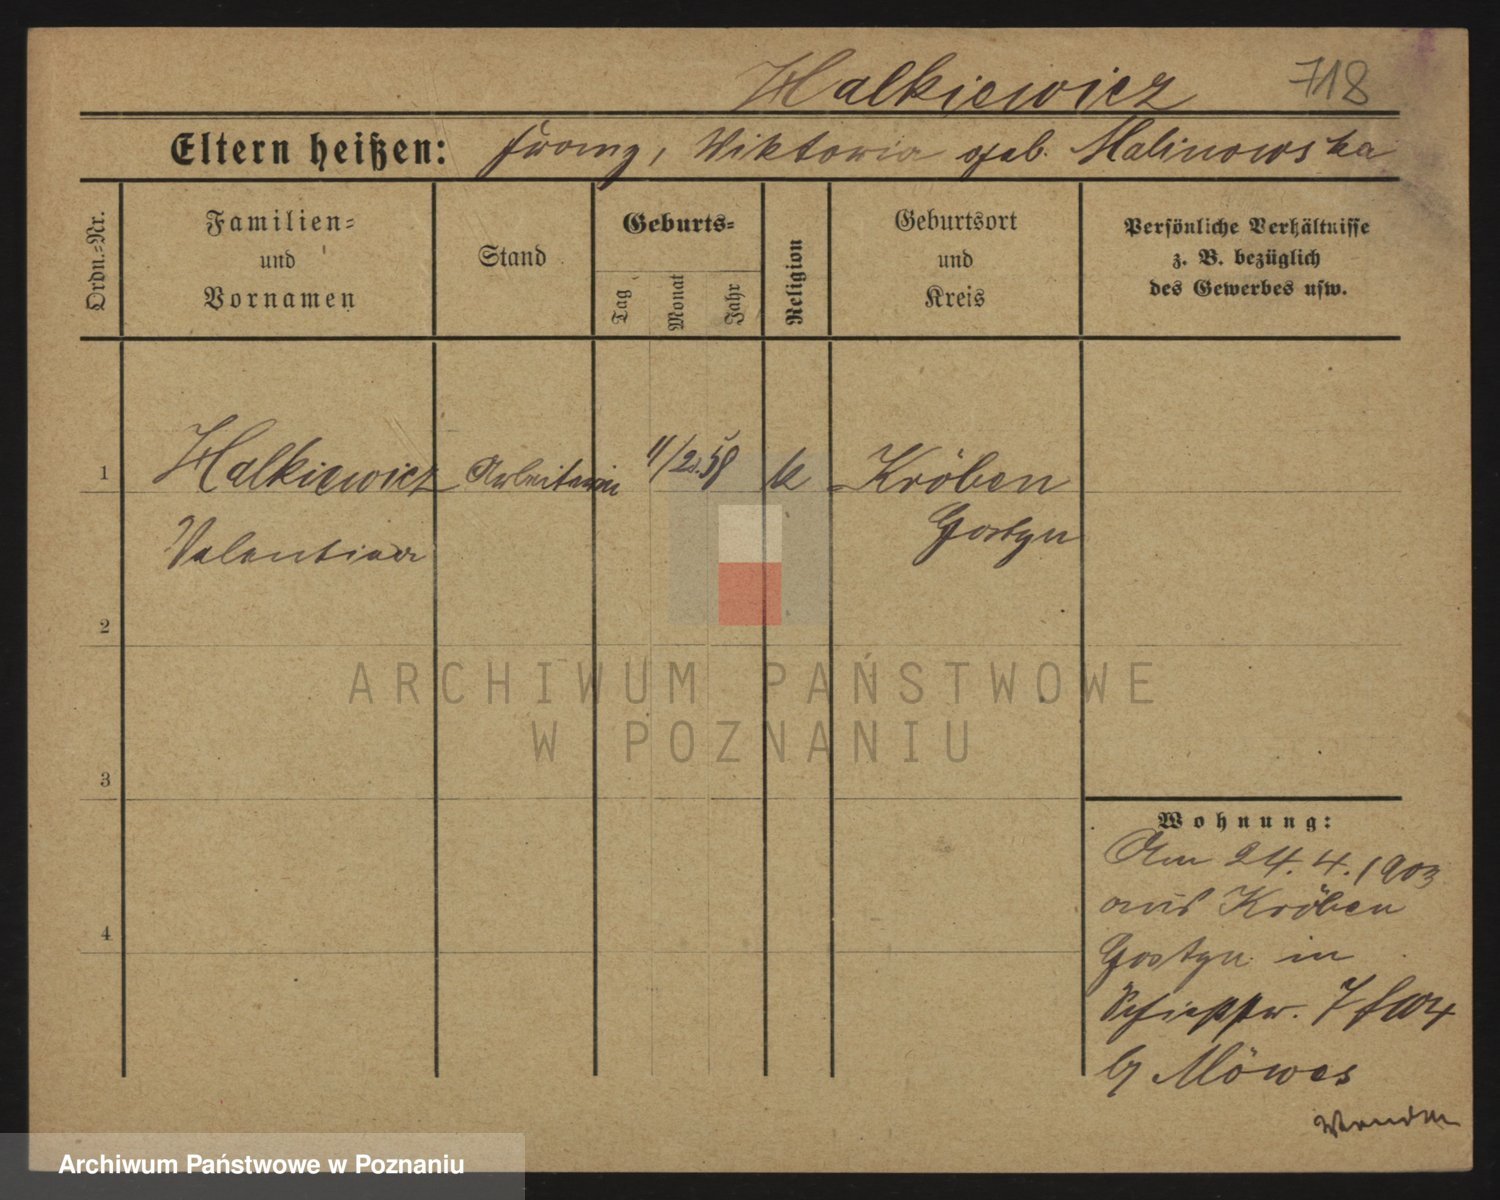 Halkiewicz 718
Eltern heißen: Franz, Viktoria geb. Malinowska
Ordn.=Nr.
Familien=
und
Vornamen
Stand
Geburts=
Tag
Monat
Jahr
Religion
Geburtsort
und
Kreis
Persönliche Verhältnisse
z. B. bezüglich
des Gewerbes usw.
1 Halkiewicz Arbeiterin 11/2. 58 k Kröben
Valentina Gostyn
2
3
4
ARCHIWUM PAŃSTWOWE
W POZNANIU
Wohnung:
Am 24.4.1903
aus Kröben
Gostyn in
Schießstr. 7
b/ Möwes
Wenden
Archiwum Państwowe w Poznaniu